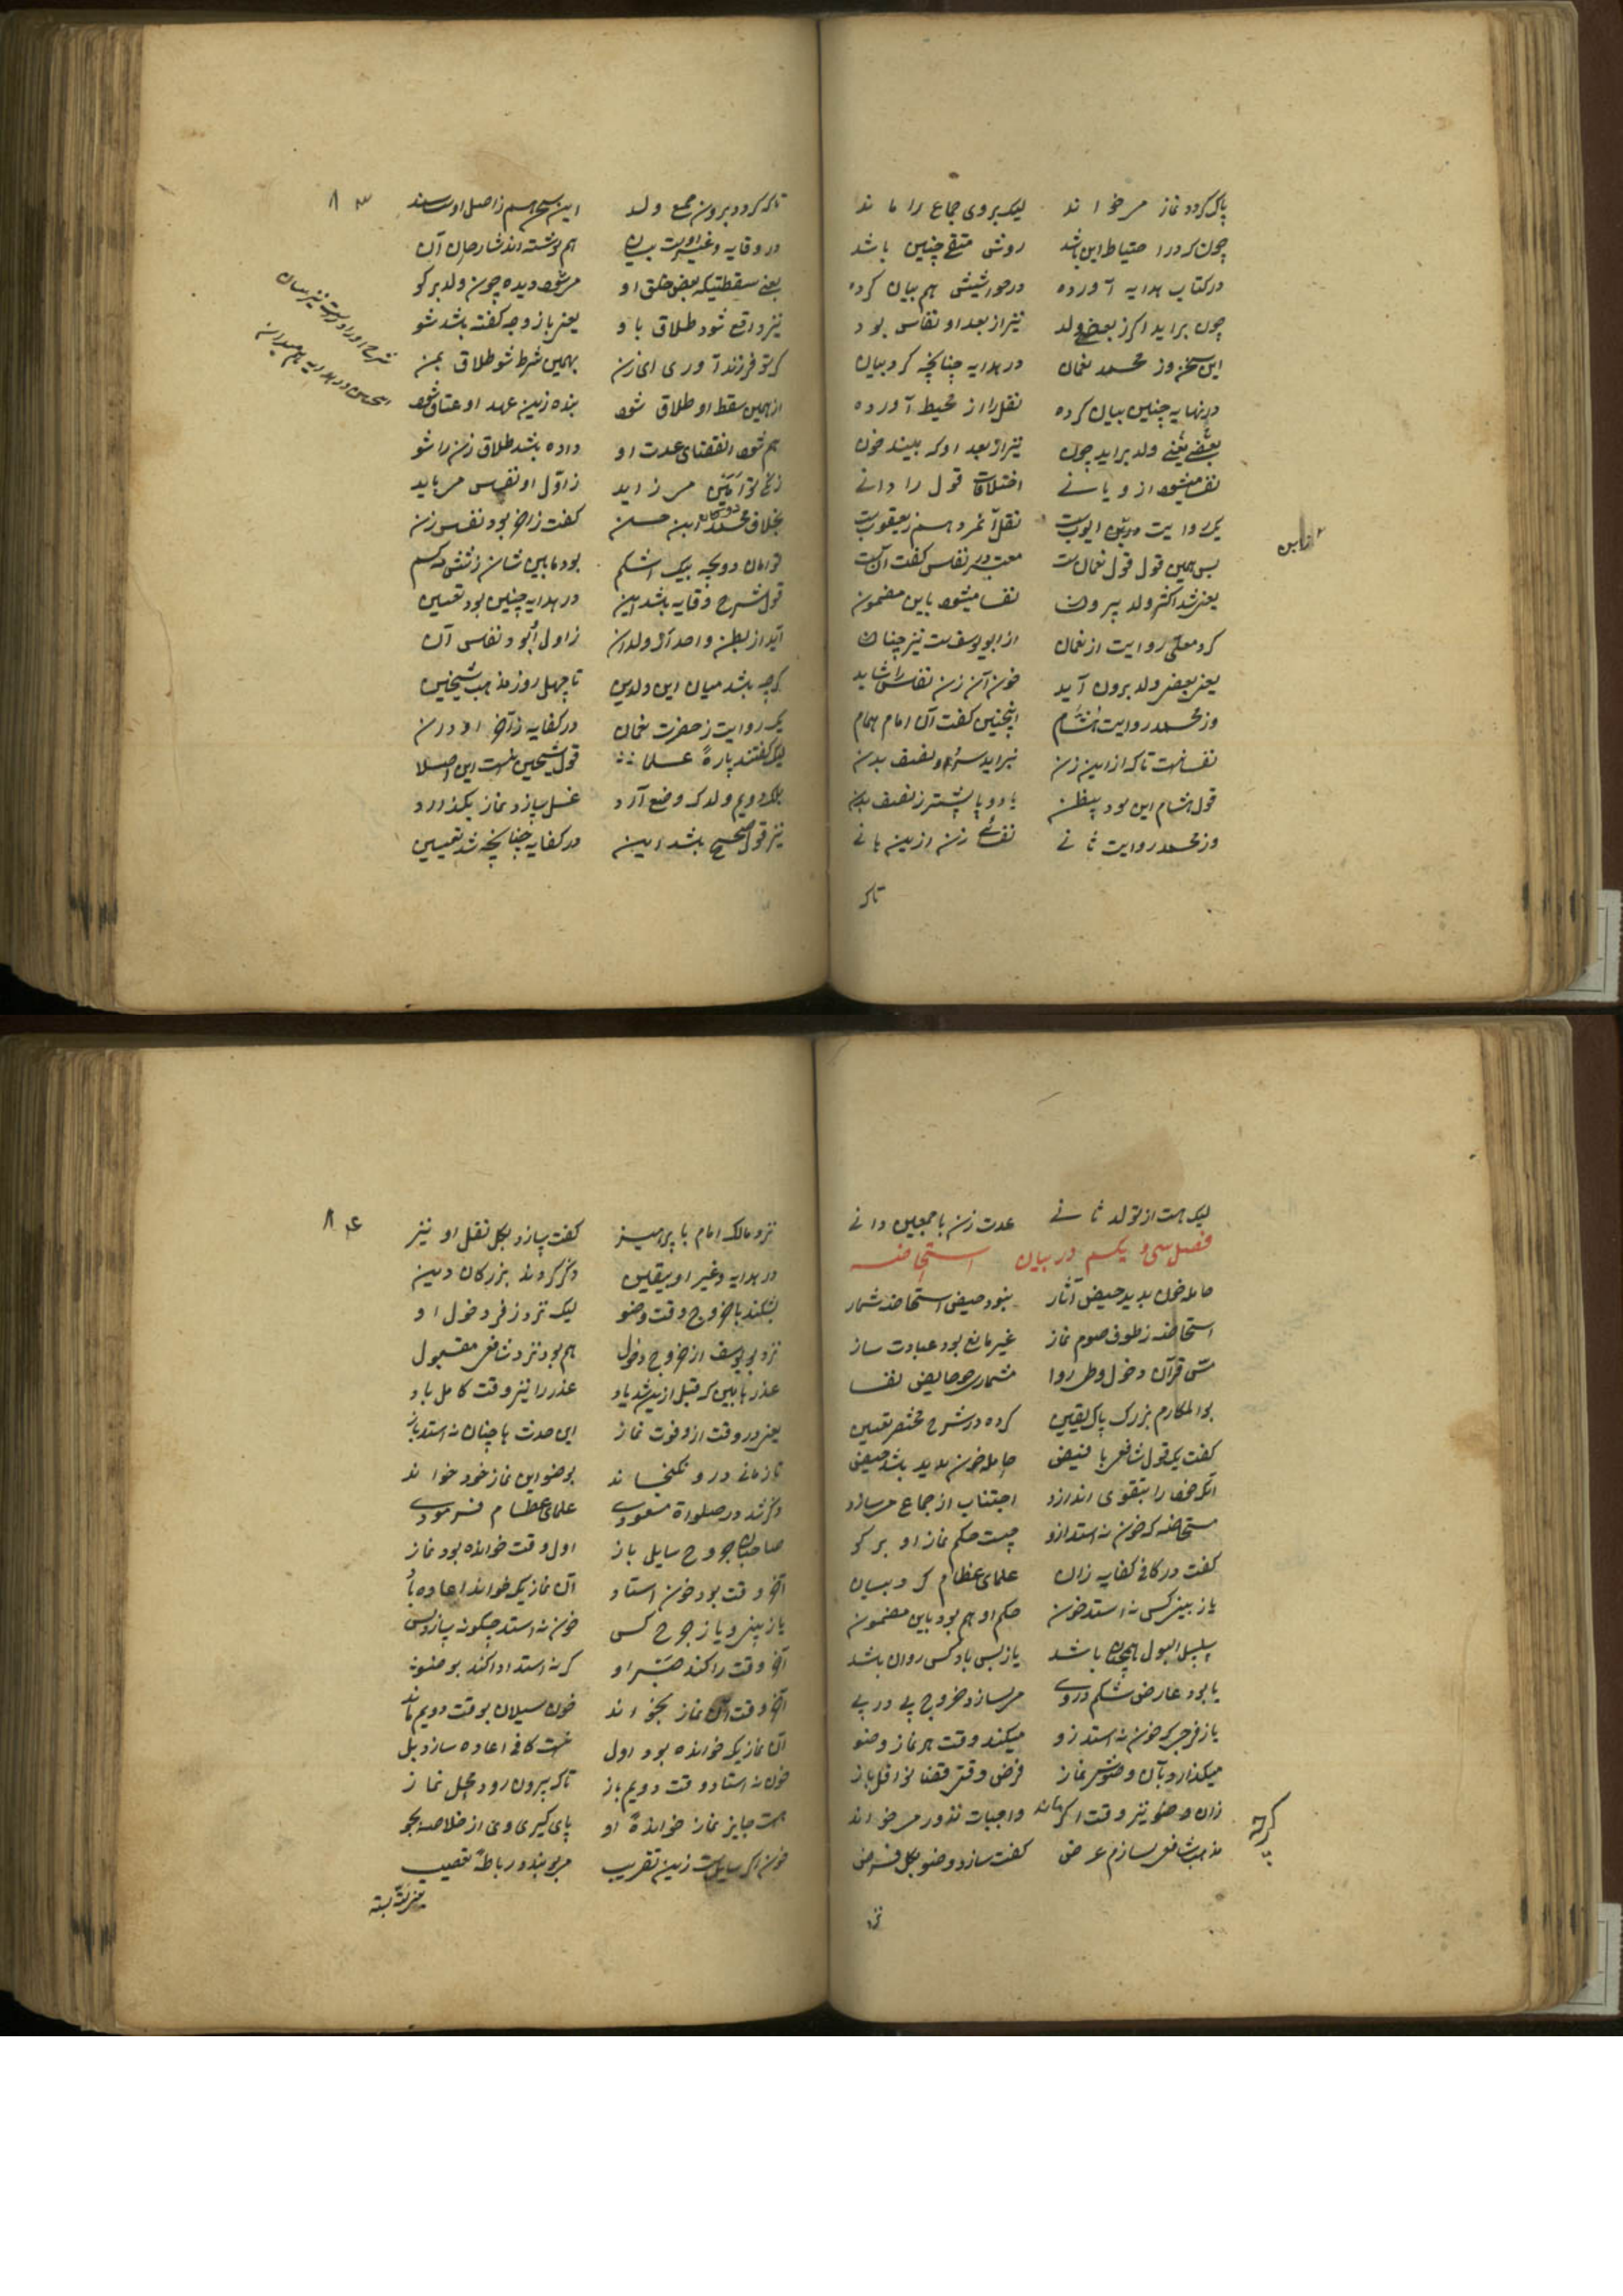 پاک کردد نماز میخواند لیک بروی جماع را ماند
چون کردد احتیاط این باشد روش متقی چنین باشد
در کتاب هدایه آورده در حواشیش هم بیان کرده
چون براید اکر ز بعض ولد نیز از بعد او نفاس بود
این سخن وز محمد نعمان در هدایه چنانچه کرد بیان
در نهایه چنین بیان کرده نقل را از محیط آورده
بعض یعنی ولد براید چون نیز از بعد او که بیند خون
نفسا میشود ازو یا نی اختلافات قول را دانی
یک روایت ایوبست نقل آخر هم ز یعقوبست
پس همین قول قول نعمانست معتبر در نفاس کفت آنست
یعنی شد اکثر ولد بیرون نفسا میشود باین مضمون
کرد معلی روایت از نعمان از ابویوسفست نیز چنان
یعنی بعض ولد برون آید خون آن زن نفاس را شاید
وز محمد روایت هشام اینچنین کفت آن امام همام
نفسا نیست تاکه از این زن نبراید سر و نصف بدن
قول هشام این بود بیظن یا دو پا بیشتر ز نصف بدن
وز محمد روایت ثانی نفسای زن از این یانی
تاکه
از این
۸۳
تاکه کردد برون جمیع ولد این سخن هم ز اصل او سند
در وقایه و غیر اوست بیان هم نوشته اند شارحان آن
یعنی سقطیکه بعض خلق او میشود دیده چون ولد برکو
نیز واقع شود طلاق باو یعنی با زوجه کفته باشد شو
کر تو فرزند آوری ای زن بهمین شرط شو طلاق بمن
از همین سقط او طلاق شود بنده زین عهد او عتاق شود
هم شود انقضای عدت او داده باشد طلاق زن را شو
زنی توأمین میزاید ز اول او نفس میباید
بخلاف محمد ابن حسن کفت ز آخر بود نفس زن
توامان دو بچه بیک اشکم بود مابین شان ز شش مه کم
قول شرح وقایه باشد این در هدایه چنین بود تعیین
آید از بطن واحد آن ولدان ز اول بود نفاس آن
کرچه باشد میان این ولدین تا چهل روز مذهب شیخین
یک روایت ز حضرت نعمان در کفایه ز آخر او دان
لیک کفتند پاره علما قول شیخین نیست این اصلا
بلکه دویم ولد که وضع آرد غسل سازد نماز بکذارد
نیز قول صحیح باشد این در کفایه چنانچه شد تعیین
لیک هست از تولد ثانی عدت زن باجمعین دانی
فصل سی و یکم در بیان استحاضه
حامله خون بدید حیض آثار نبود حیض استحاضه شمار
استحاضه ز طوف صوم نماز غیر مانع بود عبادت ساز
مس قرآن دخول وطی روا مشماری چو حایض نفسا
بوالمکارم بزرک پاک یقین کرده در شرح مختصر تعیین
کفت یک قول شافعی با فیض حامله خون بدید باشد حیض
آنکه خود را بتقوی اندازد اجتناب از جماع میسازد
مستحاضه که خون نه استد ازو چیست حکم نماز او برکو
کفت در کافی کفایه زان علمای عظام کرد بیان
یاز بینی کس نه استد خون حکم او هم بود باین مضمون
سلسل البول همچنان باشد یاز پس باد کس روان باشد
یا بود عارض شکم دروی میسازد خروج پی در پی
یاز فرجی که خون نه استد زو میکند وقت هر نماز وضو
میکذارد بآن وضوش نماز فرض وقتی قضا نوافل باز
زان وضو نیز وقت اکر ماند واجبات نذور میخواند
مذهب شافعی سازم عرض کفت سازد وضو بکل فرض
نزد
۸۴
نزد مالک امام با پرهیز کفت سازد بکل نفل او نیز
در هدایه و غیر او بیقین ذکر کردند بزرکان دین
بشکند با خروج وقت وضو لیک نزد زفر دخول او
نزد بویوسف از خروج دخول هم بود نزد شافعی مقبول
عذر را نیز وقت کامل باد
یعنی در وقت از و فوت نماز این حدث با چنان نه استد باز
تا زمانی درو نکنجاند بوضو این نماز خود خواند
ذکر شد در صلواة مسعودی علمای عظام فرمودی
صاحب جروح سایل باز اول وقت خوانده بود نماز
آخر وقت بود خون استاد آن نمازیکه خواند اعاده باد
یاز بینی و یاز جرح کس خون نه استد چکونه سازد پس
آخر وقت را کند صبر او کر نه استد ادا کند بوضو
آخر وقت آن نماز بخواند خون سیلان بوقت دویم ماند
آن نمازیکه خوانده بود اول نیست کافی اعاده سازد بل
خون نه استاد وقت دویم باز تاکه بیرون رود محل نماز
هست جایز نماز خوانده او پای کیری وی از خلاصه بجو
خون اکر سایل است زین تقریب میبندد رباطه تعصیب